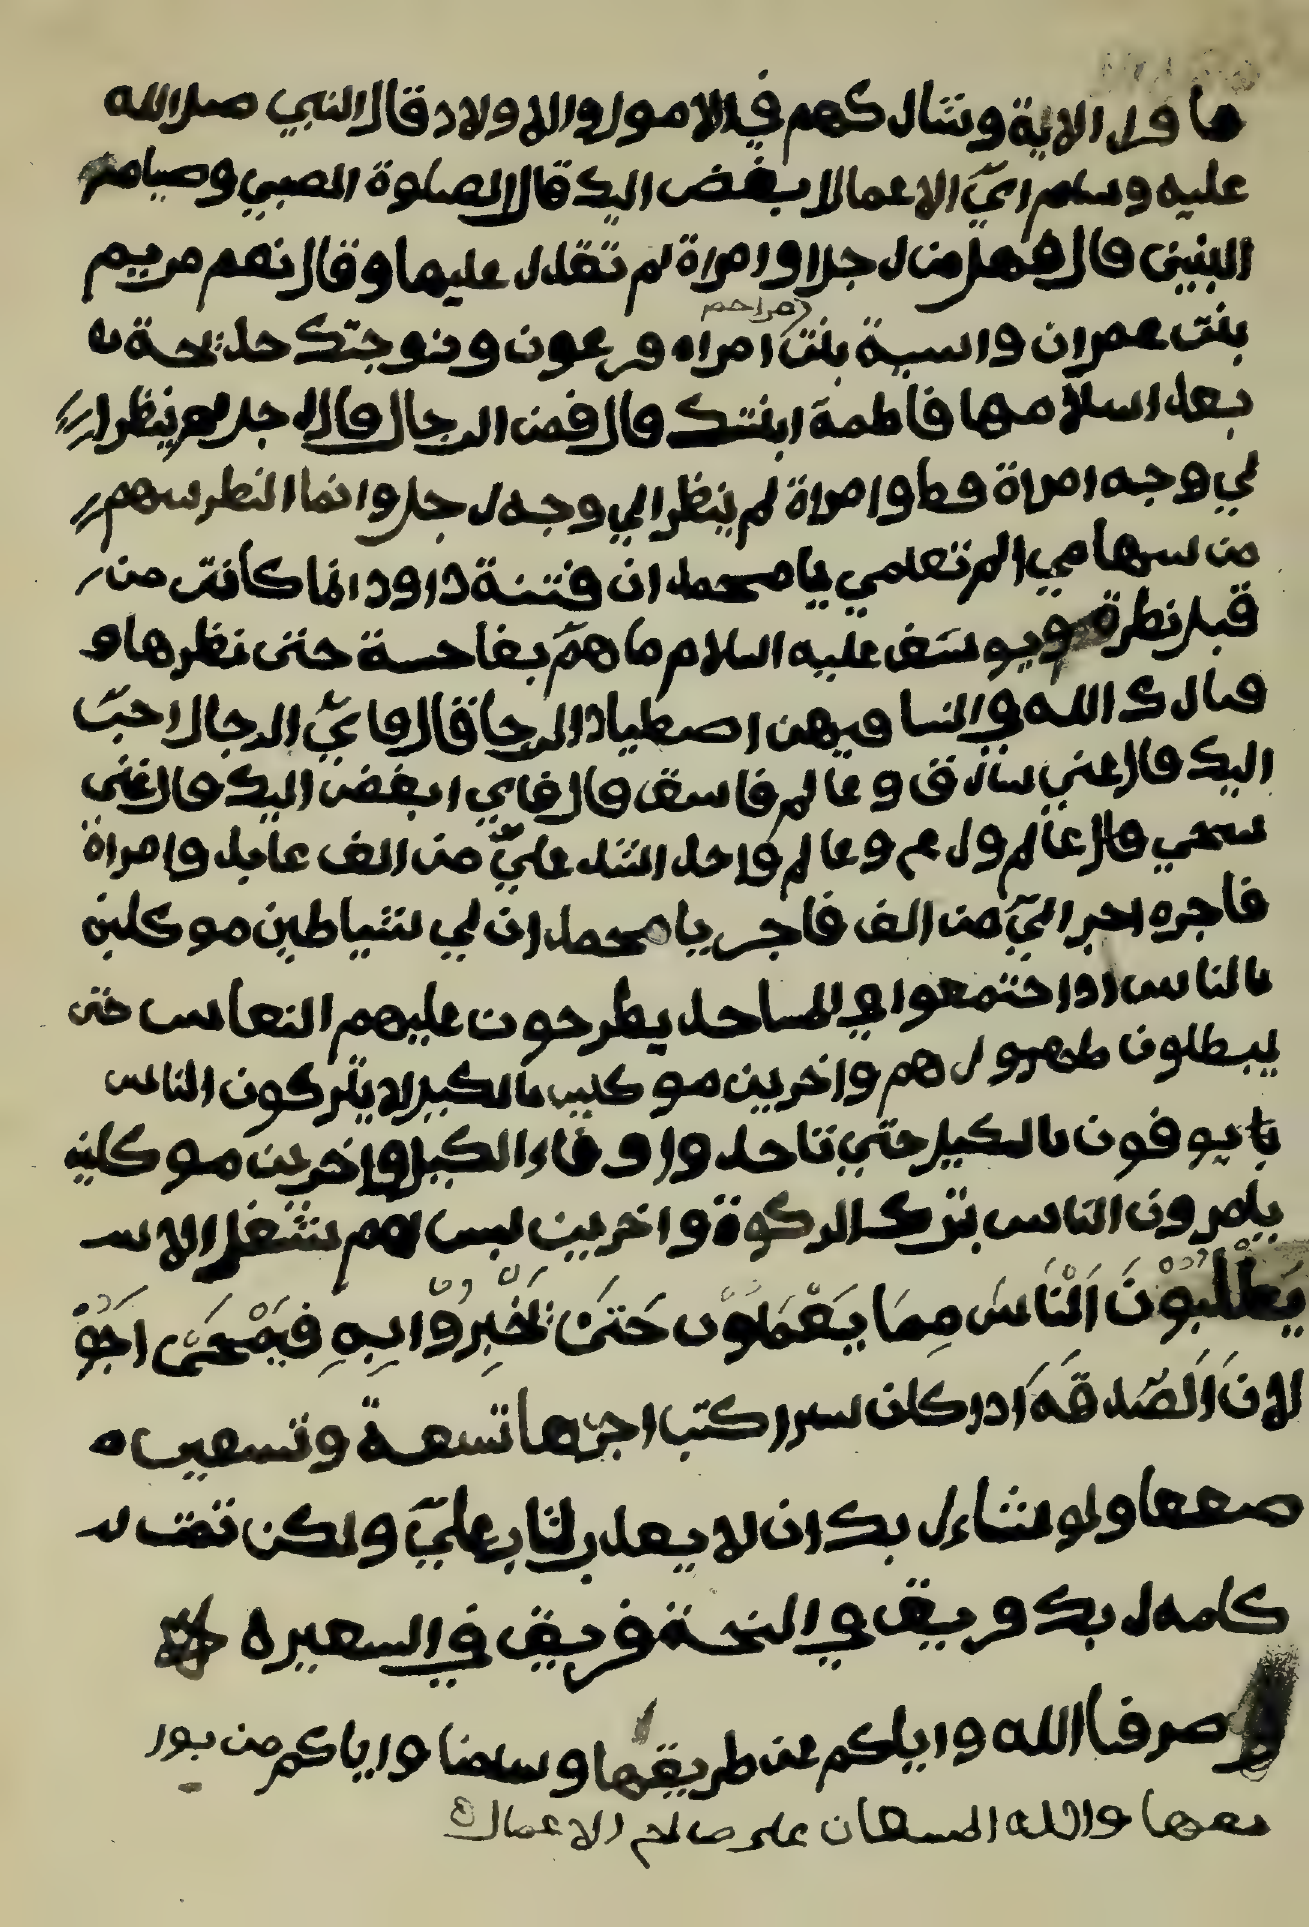 ما قرا الاية وشاركهم في الاموال والاولاد قال النبي صلى الله
عليه وسلم ايّ الاعمال ابغض اليك قال الصلوة الصبي وصيام
البنين قال فهل من رجل او امراة لم تقدر عليها وقال نعم مريم
بنت عمران واسية بنت مزاحم امراه فرعون وزوجتك خديجة
بعد اسلامها فاطمة ابنتك قال فمن الرجال قال رجل لم ينظر ا
لي وجه امراة قط وامراة لم ينظر الي وجه رجل وانما النظر سهم
من سهامي الم تعلمي يا محمد ان فتنة داود انما كانت من
قبل نظرة ويوسف عليه السلام ما همّ بفاحسة حتى نظرها و
قال الله والنسا فيهن اصطياد الرجا قال فايّ الرجال احبّ
اليك قال غني سارق وعالم فاسق قال فاي ابغض اليك قال غني
سخي قال عالم ورع وعالم واحد اشد عليّ من الف عابد وامراة
فاجره احب اليّ من الف فاجر يا محمد ان لي شياطين موكلين
بالناس اذا اجتمعوا في المساجد يطرحون عليهم النعاس حتى
يبطلون طهورهم واخرين موكلين بالكيل لا يتركون الناس
يوفون بالكيل حتي واخرين موكلين
يامرون الناس بترك الزكوة واخرين ليس لهم شغل الا
يَطْلُبُونَ اَلْنَاسَ مِمَا يَعْمَلُون حَتَىْ يُخْبِرُوْا بِهِ فَيَمْحَىْ اجْوْ
لانَ اَلصَّدقَهَ اذا كان سرا كتب اجرها تسعة وتسعين
ضعفا ولو شاء ربك ان لا يعذر لثا بعليّ ولكن تمت
كلمه ربك فريق في الجنة فريق في السعير
وصرفنا الله واياكم عن طريقها وسلمنا واياكم من
والله المستعان على صالح الاعمال